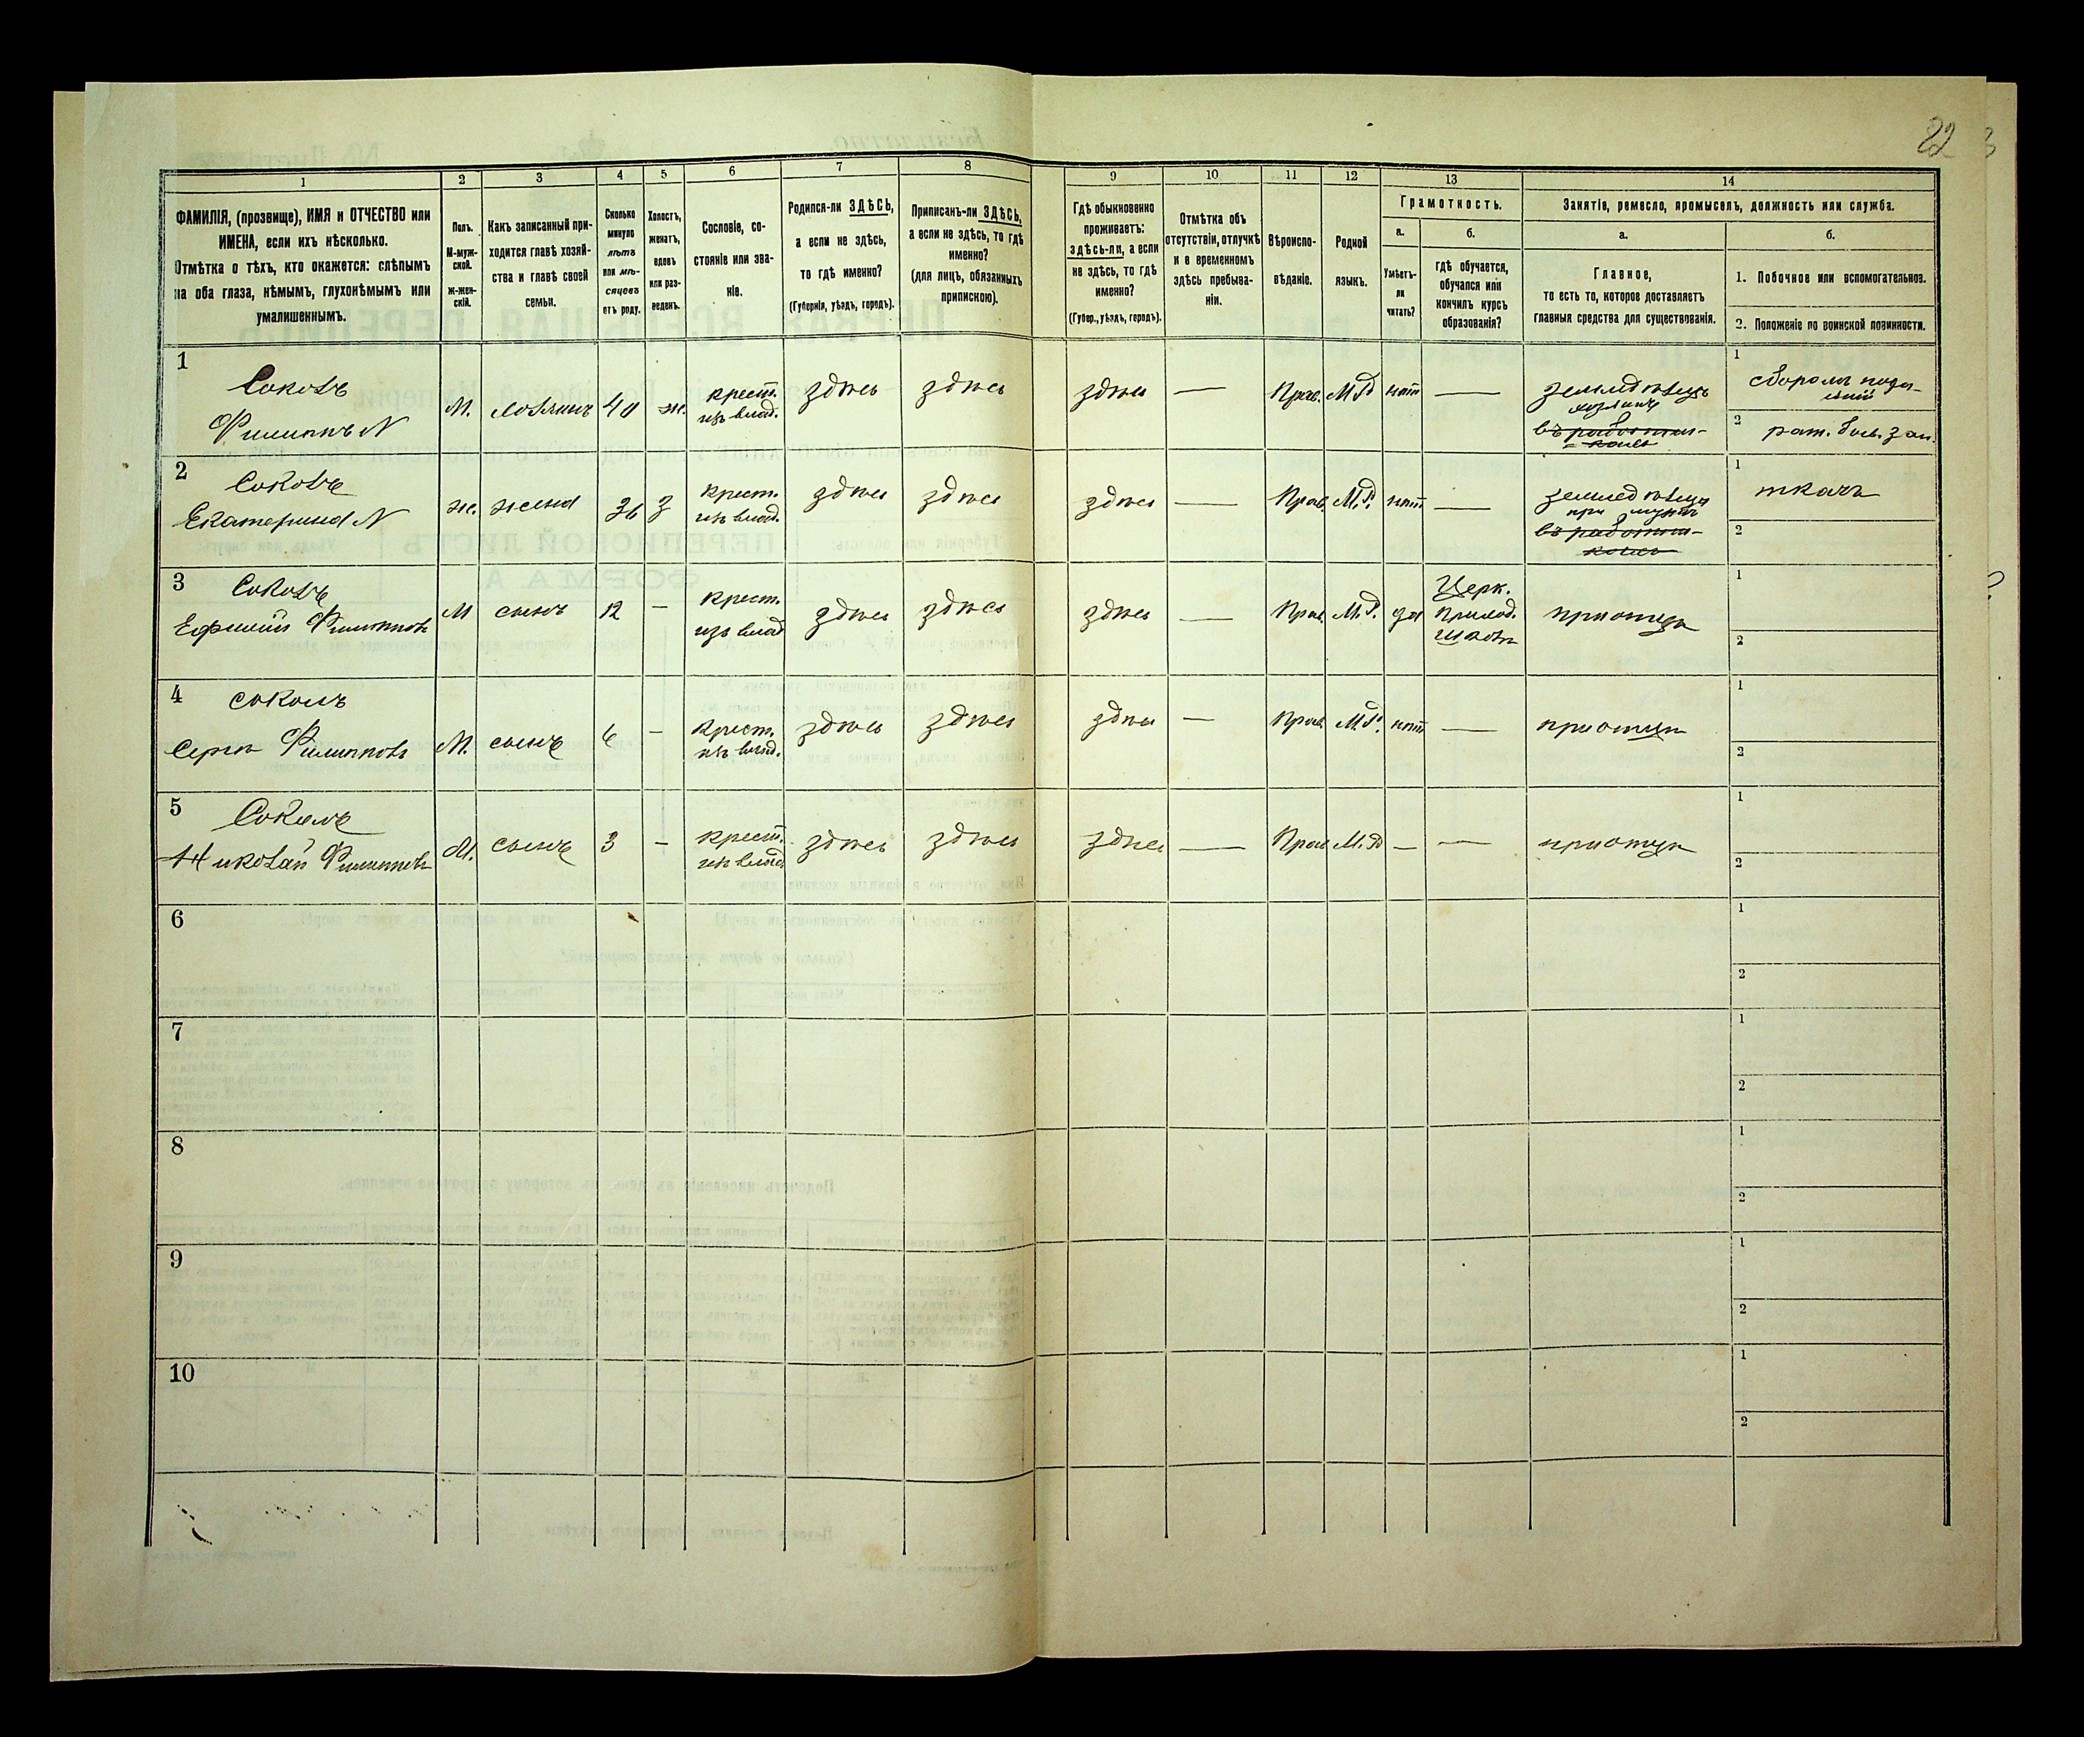 22
1
2
3
4
5
6
7
8
9
10
11
12
13
14
ФАМИЛІЯ, (прозвище), ИМЯ и ОТЧЕСТВО или
ИМЕНА, если ихъ нѣсколько.
Отмѣтка о тѣхъ, кто окажется: слѣпымъ
на оба глаза, нѣмымъ, глухонѣмымъ или
умалишеннымъ.
Полъ.
М-муж-
ской.
ж-жен-
скій.
Какъ записанный при-
ходится главѣ хозяй-
ства и главѣ своей
семьи.
Сколько
минуло
лѣтъ
или мѣ-
сяцевъ
отъ роду.
Холостъ,
женатъ,
вдовъ
или раз-
веденъ.
Сословіе, со-
стояніе или зва-
ніе.
Родился-ли ЗДѢСЬ,
а если не здѣсь,
то гдѣ именно?
(Губернія, уѣздъ, городъ).
Приписанъ-ли ЗДѢСЬ,
а если не здѣсь, то гдѣ
именно?
(для лицъ, обязанныхъ
припискою).
Гдѣ обыкновенно
проживаетъ:
здѣсь-ли, а если
не здѣсь, то гдѣ
именно?
(Губер., уѣздъ, городъ).
Отмѣтка объ
отсутствіи, отлучкѣ
и о временномъ
здѣсь пребыва-
ніи.
Вѣроиспо-
вѣданіе.
Родной
языкъ.
Грамотность.
а.
Умѣетъ-
ли
читать?
б.
гдѣ обучается,
обучался или
кончилъ курсъ
образованія?
Занятіе, ремесло, промыселъ, должность или служба.
а.
Главное,
то есть то, которое доставляетъ
главныя средства для существованія.
б.
1. Побочное или вспомогательное.
2. Положеніе по воинской повинности.
1
Филиппъ N
М.
40
ж.
крест.
изъ влад.
здѣсь
здѣсь
здѣсь
—
Прав.
М.Р.
нѣт
—
земледѣлецъ
хозяинъ
1
2
2
Екатерина N
ж.
жена
36
З
крест.
изъ влад.
здѣсь
здѣсь
здѣсь
—
Прав.
М.Р.
нѣт
—
1
ткачъ
2
3
Ефимій Филипповъ
М
сынъ
12
—
крест.
изъ влад
здѣсь
здѣсь
здѣсь
—
Прав.
М.Р.
да
Церк.
Приход.
школѣ
при отцѣ
1
2
4
Филипповъ
М.
сынъ
6
—
крест.
изъ влад.
здѣсь
здѣсь
здѣсь
—
Прав.
М.Р.
нѣт
—
при отцѣ
1
2
5
Николай Филипповъ
М.
сынъ
3
—
крест.
изъ влад
здѣсь
здѣсь
здѣсь
—
Прав
М.Р
—
—
при отцѣ
1
2
6
1
2
7
1
2
8
1
2
9
1
2
10
1
2